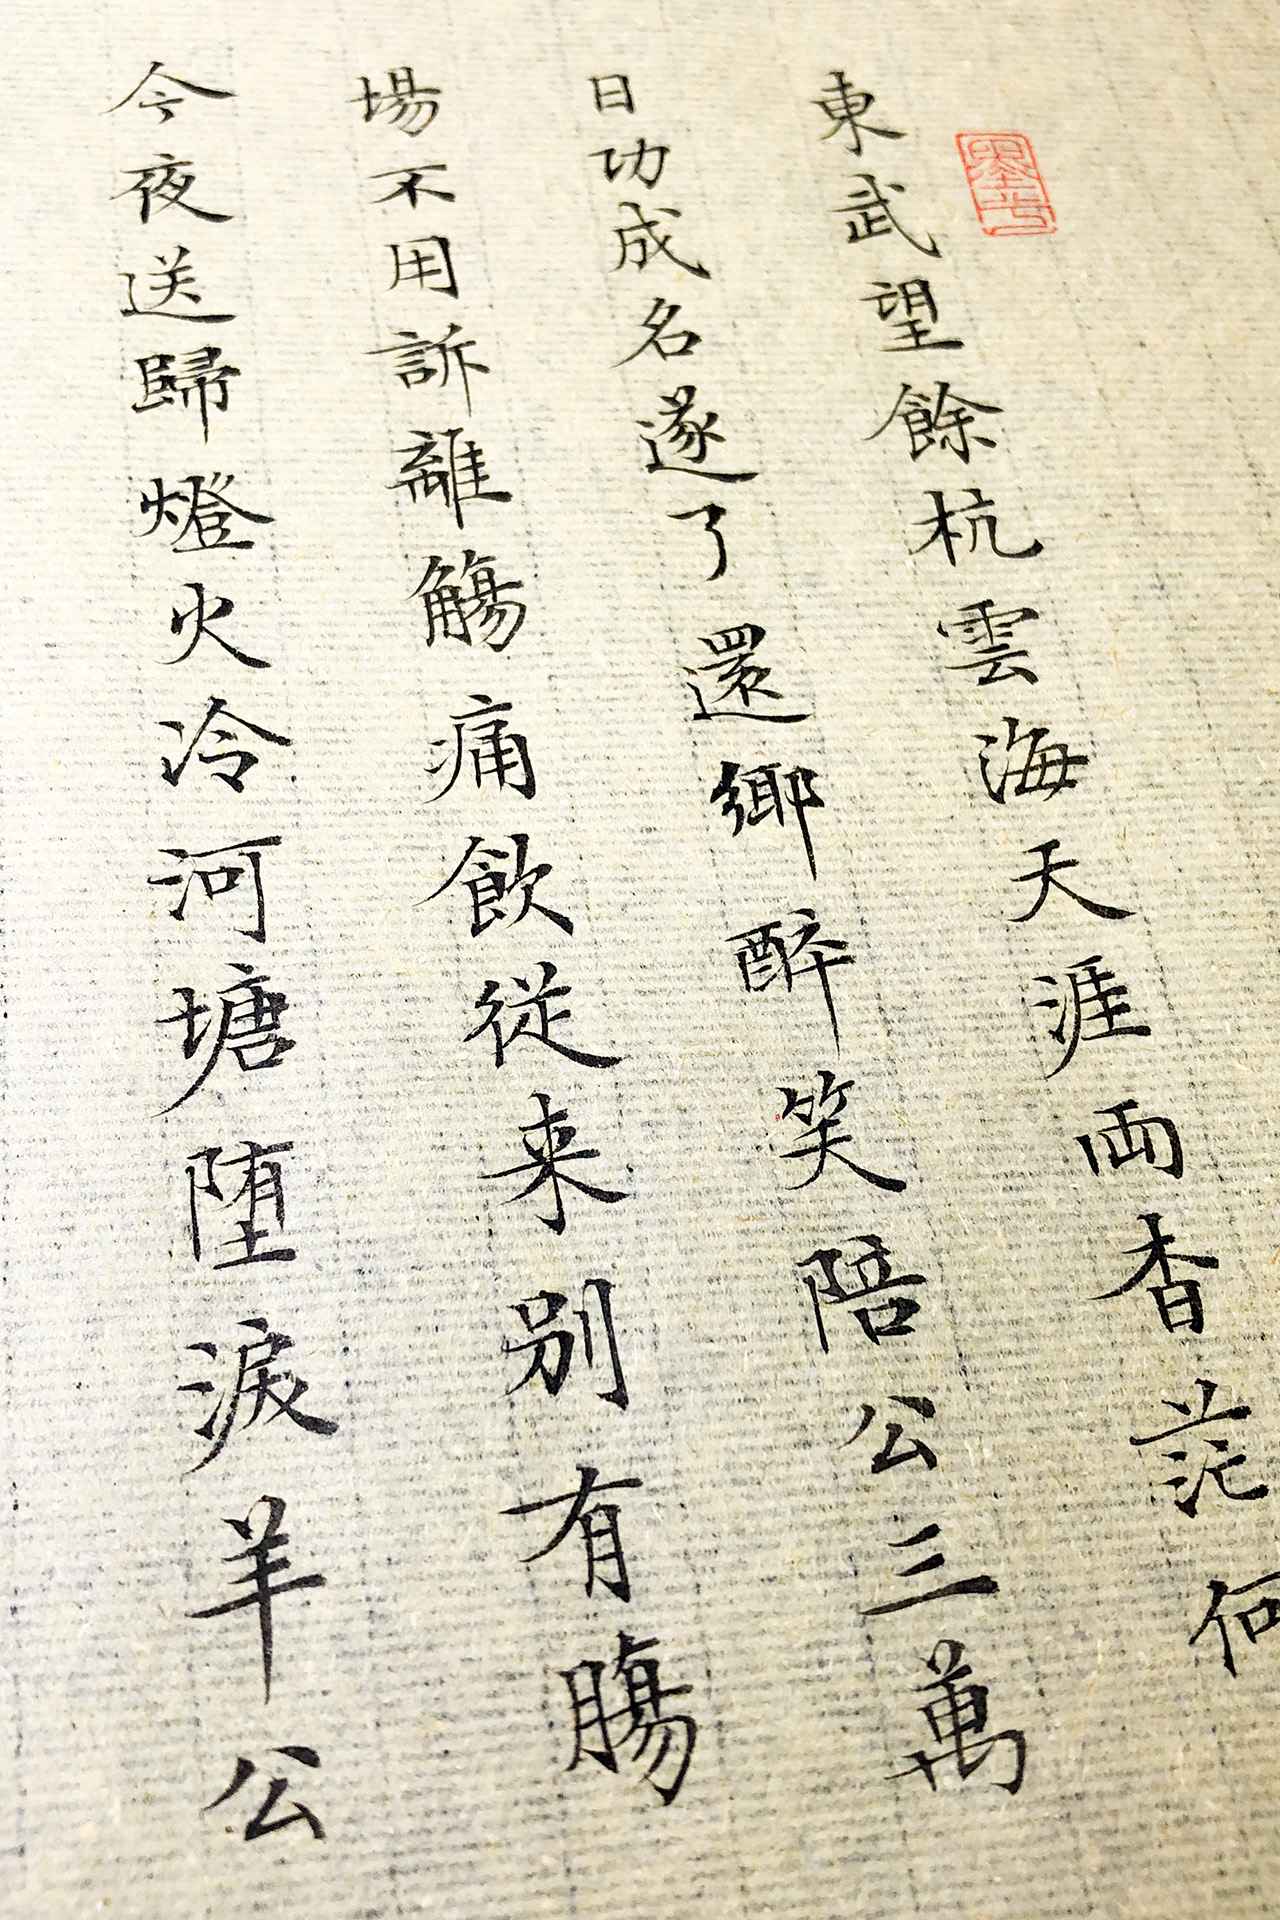 東武望餘杭雲海天涯両杳茫何
日功成名遂了還鄉醉笑陪公三萬
場不用訴離觴痛飲従来别有腸
今夜送歸燈火冷河塘堕淚羊公